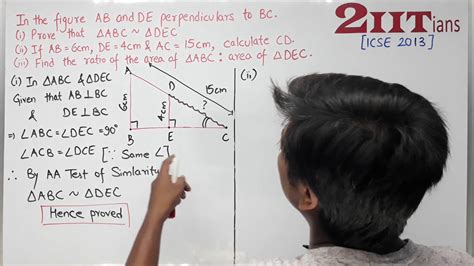 In the figure AB and DE perpendiculars to BC.
(i) Prove that △ABC ~ △DEC
(ii) If AB = 6cm, DE = 4cm & AC = 15cm, calculate CD.
(iii) Find the ratio of the area of △ABC : area of △DEC.
2IITians
[ICSE 2013]
(i) In △ABC & △DEC
Given that AB⊥BC
& DE⊥BC
⇒ ∠ABC = ∠DEC = 90°
∠ACB = ∠DCE [∵ Same ∠]
∴ By AA Test of Simlarity
△ABC ~ △DEC
Hence proved
A
D
15cm
?
6cm
4cm
B
E
C
(ii)